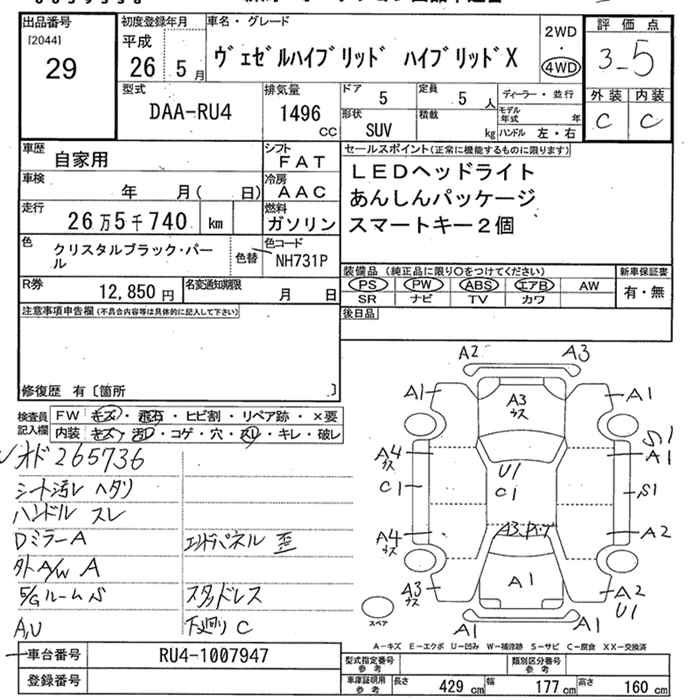 出品番号
[2044]
29
初度登録年月
平成
26 5月
車名・グレード
ヴェゼルハイブリッド ハイブリッドX
2WD
・
4WD
評価点
3-5
外装 内装
C C
型式
DAA-RU4
排気量
1496
cc
ドア
5
定員
5人
形状
SUV
積載
kg
ディーラー・並行
モデル年式 年
ハンドル 左・右
車歴
自家用
シフト
FAT
車検
年 月( 日)
冷房
AAC
走行
26万5千740 km
燃料
ガソリン
色
クリスタルブラック・パール
色替
色コード
NH731P
R券
12,850円
名変通知期限
月 日
セールスポイント(正常に機能するものに限ります)
LEDヘッドライト
あんしんパッケージ
スマートキー2個
装備品(純正品に限り○をつけてください)
PS PW ABS エアB AW
SR ナビ TV カワ
新車保証書
有・無
後日品
注意事項申告欄(不具合内容等は具体的に記入して下さい)
修復歴 有〔箇所 〕
検査員
記入欄
FW キズ・飛石・ヒビ割・リペア跡・×要
内装 キズ・汚レ・コゲ・穴・スレ・キレ・破レ
オド265736
シート汚レ ヘタリ
ハンドル スレ
DミラーA
外A/W A
E/Gルーム
A,U
エンドパネル 歪
スタッドレス
下廻り C
A2 A3
A1 A3 キズ A1
S1
A4 キズ A1
U1
C1 C1 S1
A4 キズ A2
A3 キズ A1 A2
U1
A1 A1
スペア
A-キズ E-エクボ U-凹み W-補修跡 S-サビ C-腐食 XX-交換済
車台番号
RU4-1007947
登録番号
型式指定番号
参考
類別区分番号
参考
車庫証明用
参考
長さ 429 cm 幅 177 cm 高さ 160 cm